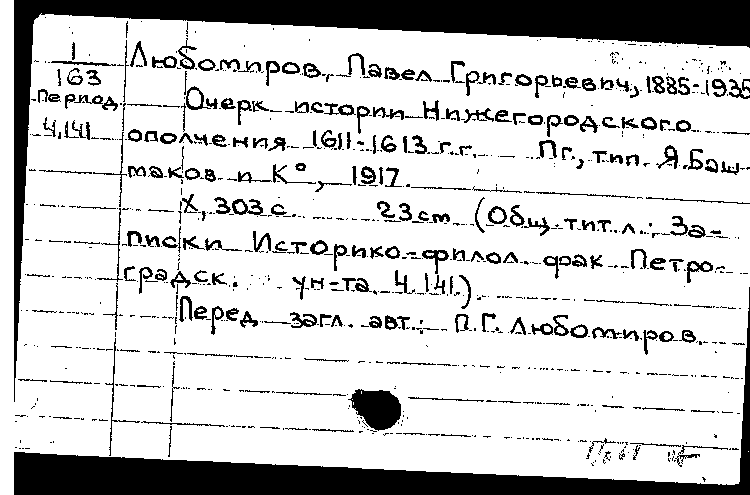 1
163
Период
Ч.141
Любомиров, Павел Григорьевич, 1885-1935
Очерк истории Нижегородского
ополчения 1611-1613 г.г. Пг., тип. Я.Баш-
маков и К°, 1917.
X, 303 с. 23 cm (Общ. тит. л.: За-
писки Историко-филол. фак Петро-
градск. ун-та. Ч. 141.).
Перед загл. авт.: П.Г. Любомиров.